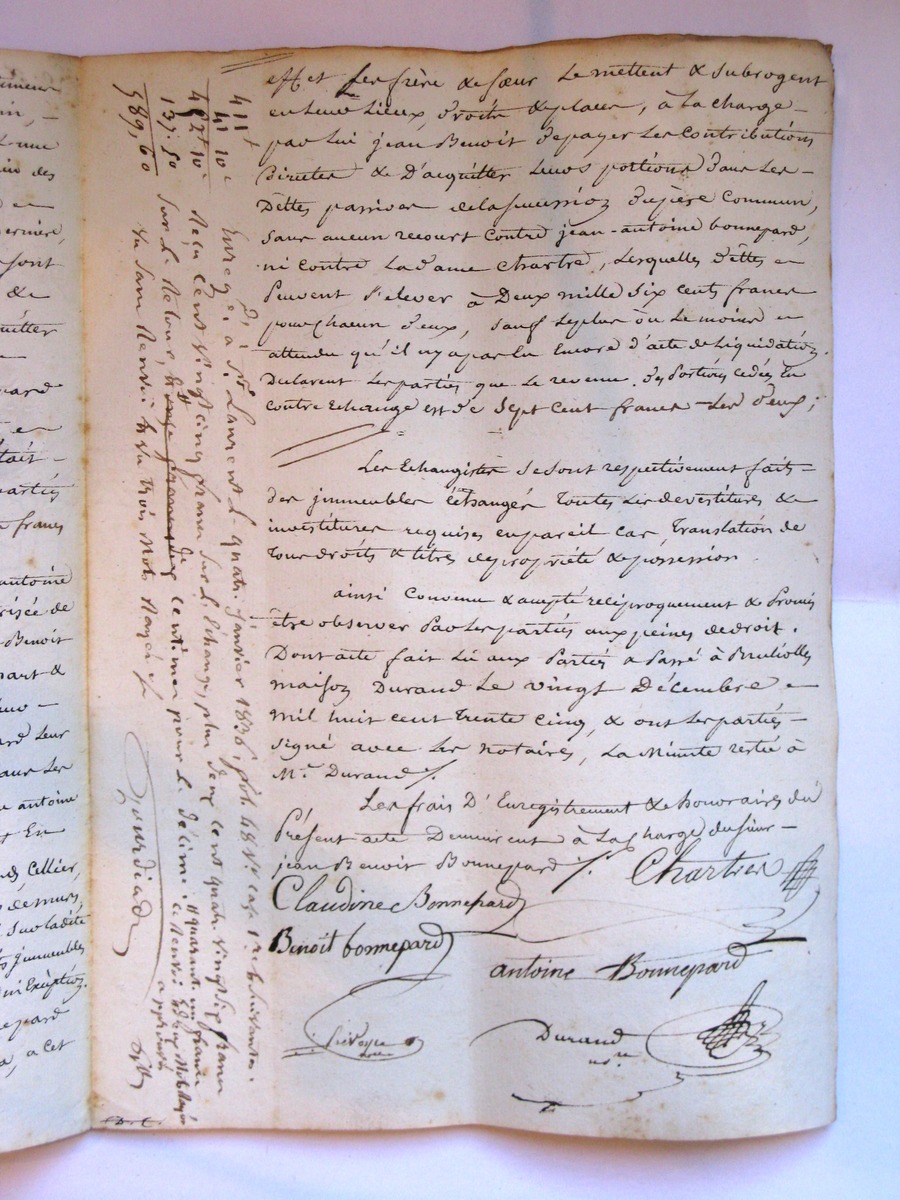 effet les frère & sœur le mettent & subrogent
en leurs lieux, droits & places, à la charge
par lui jean Benoit de payer les Contributions
Directes & D'acquitter leurs portions dans les
Dettes passives de la succession du père Commun,
sans aucun recours Contre jean-antoine bonnepard,
ni contre la dame Chartre, lesquelles dettes
Peuvent s'elever à Deux mille six cents francs
pour chacun d'eux, sauf le plus ou le moins
attendu qu'il n'y a pas eu Encore d'acte de liquidation.
Declarent les parties que le revenu des Portions cedées En
Contre Echange est de sept cent francs les deux;
Les Echangistes se sont respectivement fait
des immeubles échangés toutes les devestitures &
investitures requises en pareil cas, Translation de
tous droits & titres de propriété & possession.
ainsi Convenu & accepté réciproquement & Promis
être observer Par les parties aux peines de droit.
Dont acte fait lu aux Parties a Passé à Brullioles
maison Durand Le vingt Décembre
mil huit cent trente cinq, & ont les parties
signé avec les notaires, la Minute restée à
Mr. Durand
Les frais D'Enregistrement & honoraires du
Présent acte Demeurent à la charge du sieur
jean Benoit Bonnepard
Chartre
Claudine Bonnepard
Benoit bonnepard
antoine Bonnepard
Durand
nore
411
41 10c
452 10c
137 50
589, 60
Enreg. à St. Laurent le quatre janvier 1836, fol. 48 Vo
Reçu Cent vingt cinq francs sur l'Echange, plus deux cent quatre vingt six francs
sur le retour,
centimes pour le décime
quarante un francs